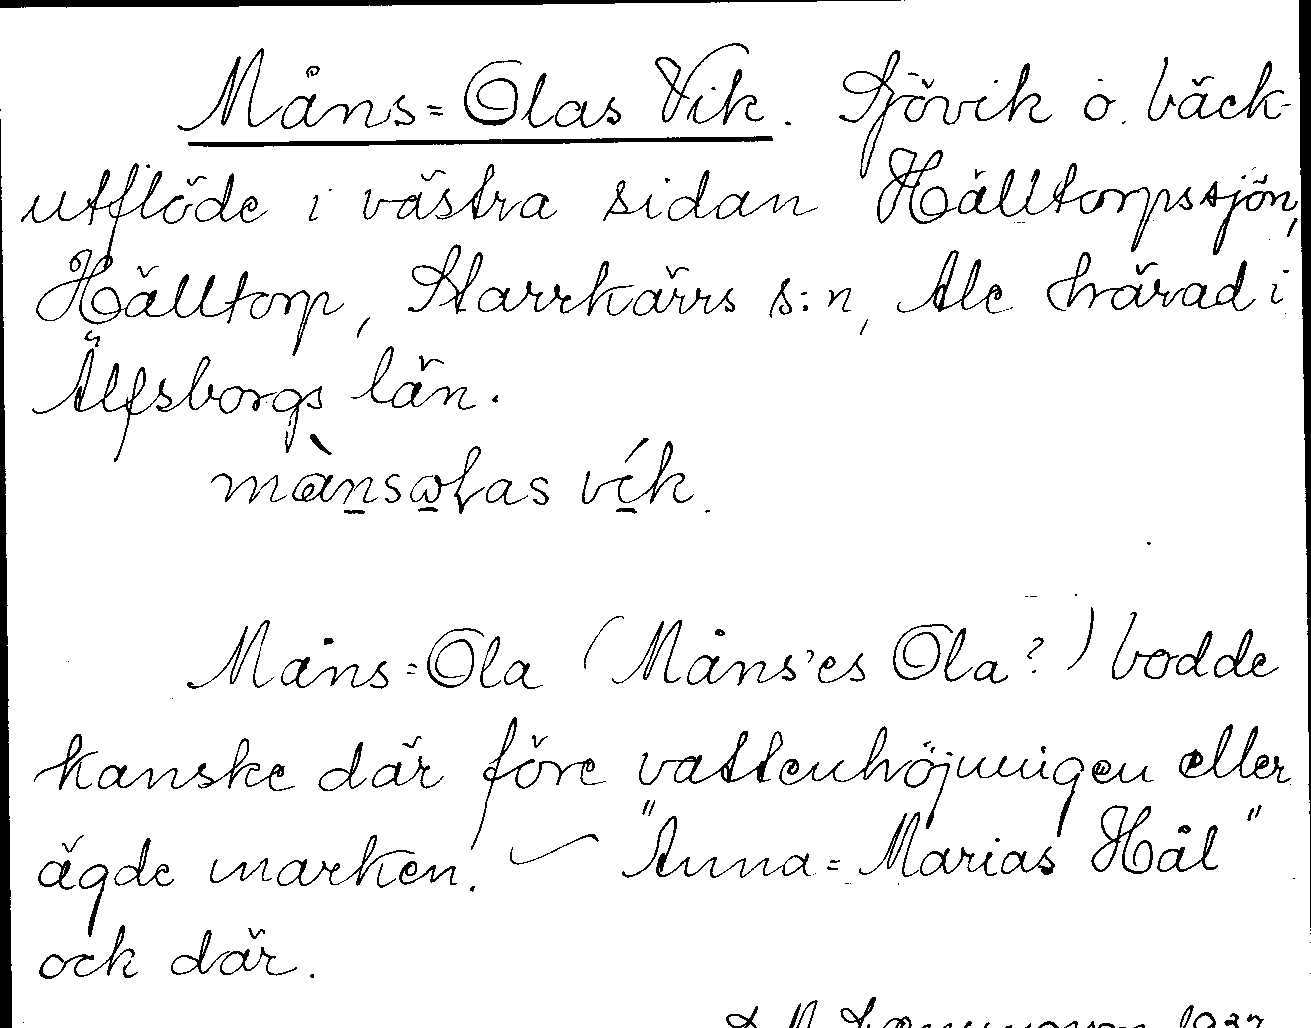 Måns=Olas Vik. Sjövik o. bäck-
utflöde i västra sidan Hälltorpssjön,
Hälltorp, Starrkärrs s:n, Ale härad i
Älfsborgs län.
vík.
Måns=Ola (Måns'es Ola?) bodde
kanske där före vattenhöjningen eller
ägde marken. "Anna=Marias Hål"
ock där.
1937